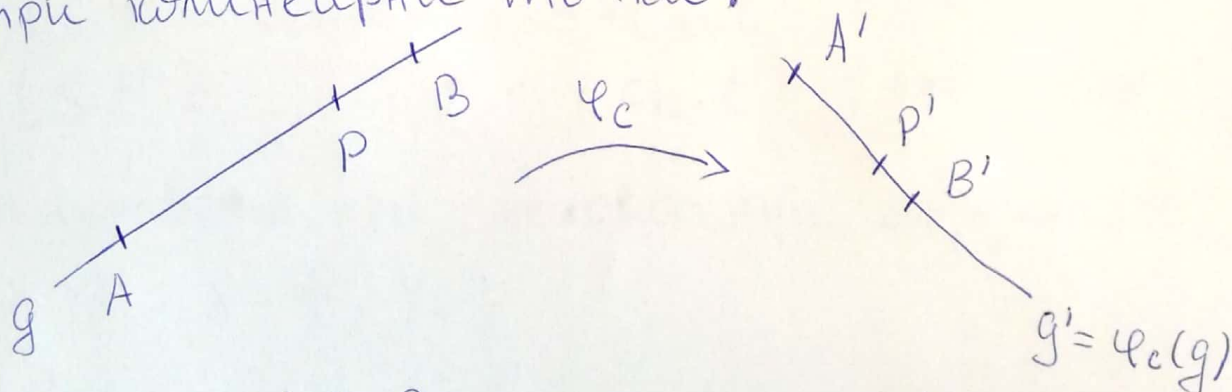 при колинеарни точки.
A'
B
φc
P'
P
B'
A
g
g' = φc(g)